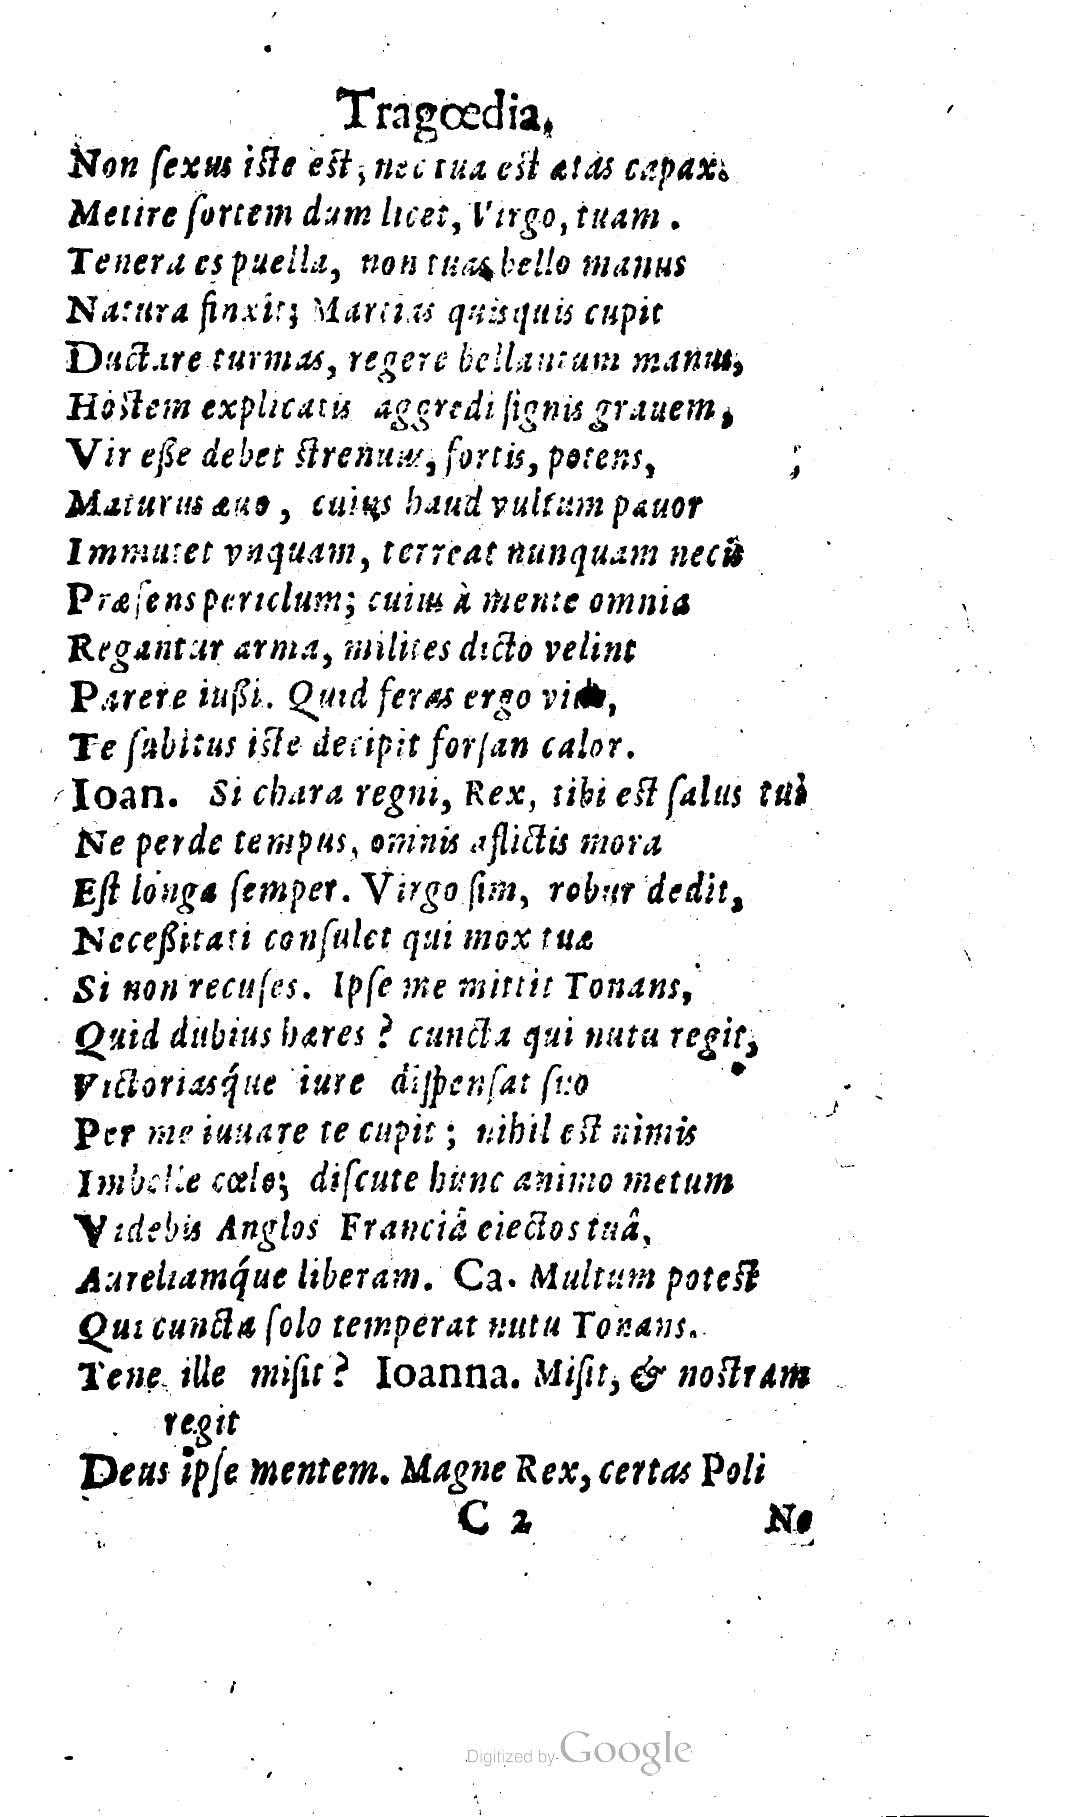 Tragœdia.
Non ſexus iste est; nec tua est ætas capax.
Metire ſortem dum licet, Virgo, tuam.
Tenera es puella, non tuas bello manus
Natura finxit; Martias quisquis cupit
Ductare turmas, regere bellantum manus,
Hostem explicatis aggredi ſignis grauem,
Vir eße debet strenuus, fortis, potens,
Maturus æuo, cuius haud vultum pauor
Immutet vnquam, terreat nunquam necis
Præſens periclum; cuius à mente omnia
Regantur arma, milites dicto velint
Parere iußi. Quid feras ergo vide,
Te ſubitus iste decipit forſan calor.
Ioan. Si chara regni, Rex, tibi est ſalus tui
Ne perde tempus, omnis aflictis mora
Eſt longa ſemper. Virgo ſim, robur dedit,
Neceßitati conſulet qui mox tuæ
Si non recuſes. Ipſe me mittit Tonans,
Quid dubius hæres? cuncta qui nutu regit,
Victoriasq́ue iure diſpenſat ſuo
Per me iuuare te cupit; nihil est nimis
Imbelle cœlo; diſcute hunc animo metum
Videbis Anglos Franciâ eiectos tuâ,
Aureliamq́ue liberam. Ca. Multum potest
Qui cuncta ſolo temperat nutu Tonans.
Tene ille miſit? Ioanna. Miſit, & nostram
regit
Deus ipſe mentem. Magne Rex, certas Poli
C 2 Ne
Digitized by Google